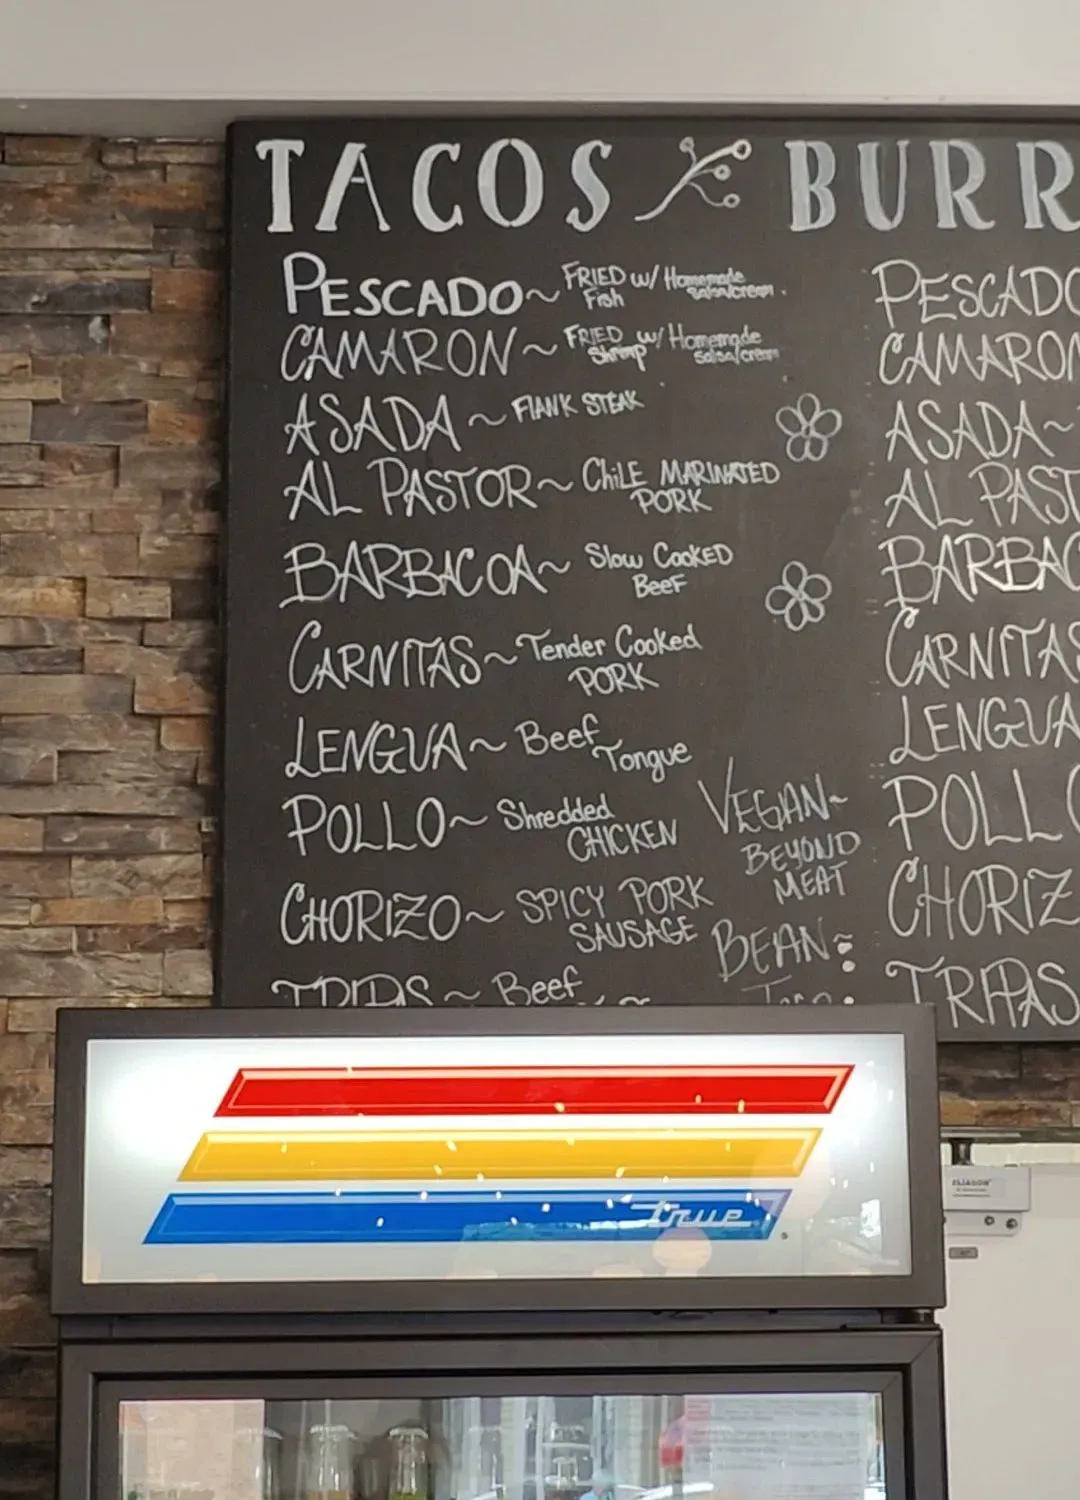 TACOS BURR
PESCADO~ FRIED w/ Homemade
Fish salsa/cream.
CAMARON~ FRIED w/ Homemade
Shrimp salsa/cream
ASADA~ FlANK STEAK
AL PASTOR~ ChiLE MARINATED
PORK
BARBACOA~ Slow COOKED
BEEF
CARNITAS~ Tender Cooked
PORK
LENGUA~ Beef
Tongue
POLLO~ Shredded
CHICKEN
CHORIZO~ SPICY PORK
SAUSAGE
TRIPAS~ Beef
VEGAN~
BEYOND
MEAT
BEAN~
Taco
PESCADO
CAMARON
ASADA~
AL PAST
BARBAC
CARNITAS
LENGUA
POLLO
CHORIZ
TRIPAS
true
ELIASON